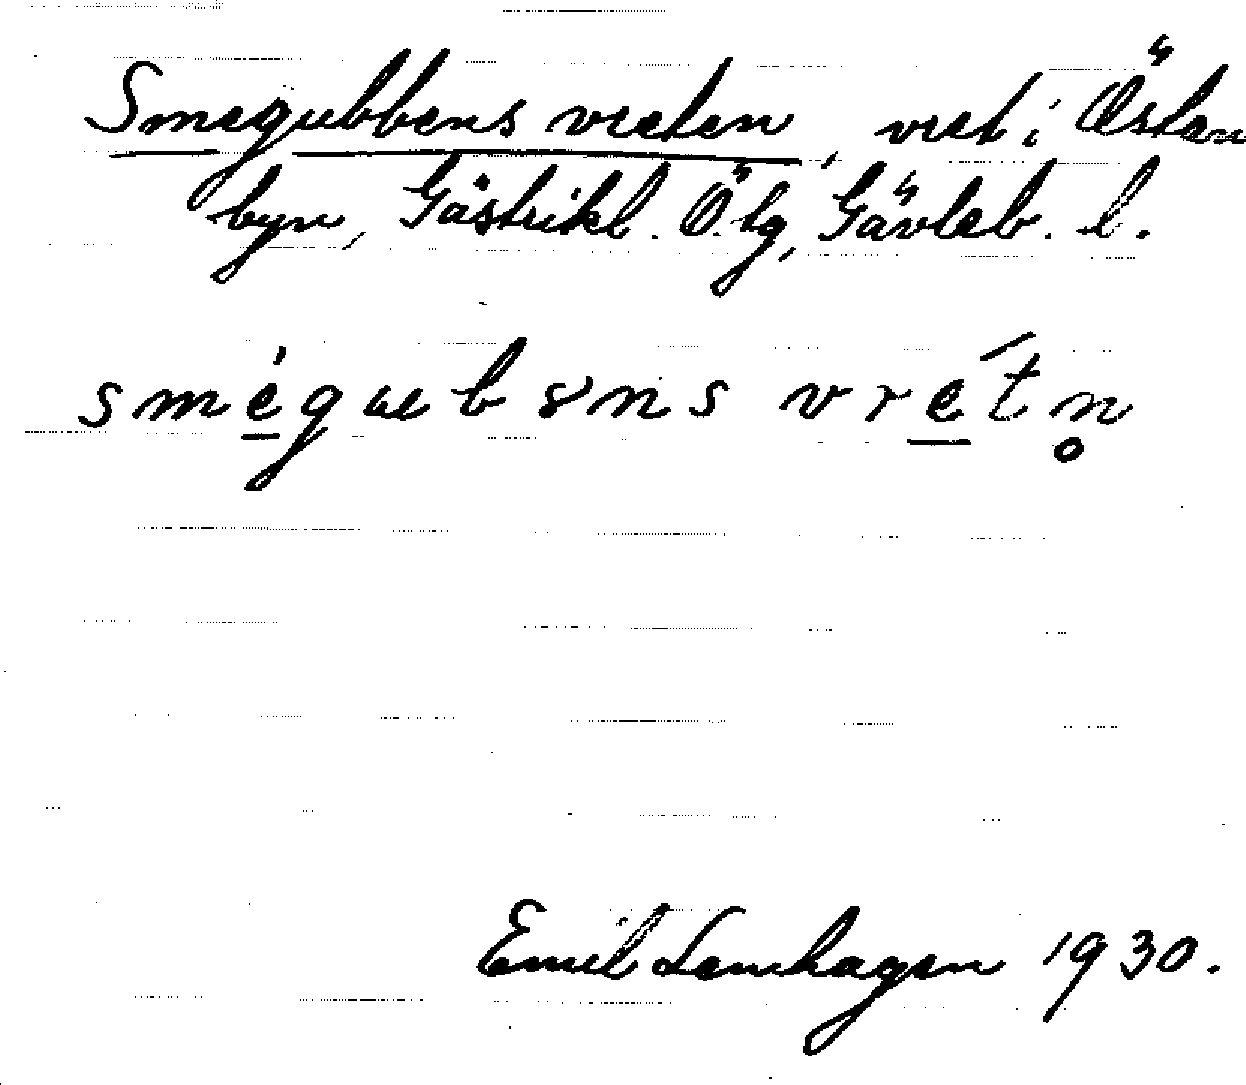 Smegubbens vreten, vret i Östan
byn, Gästrikl. Ö. tg, Gävleb. l.
smégubɤns vrétn̥
Emil Lenhagen 1930.